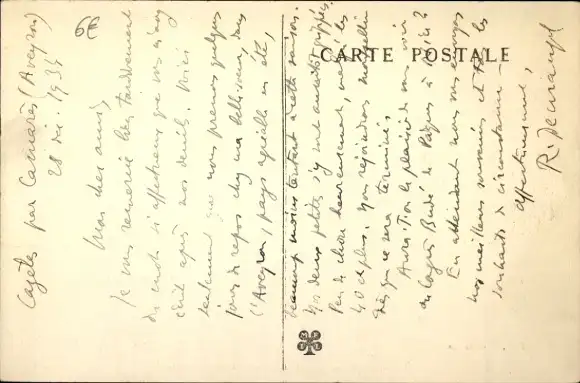 6€
CARTE POSTALE
par Camarès (Aveyron)
28 déc. 1935
Mon cher ami,
Je vous remercie bien tardivement
du mot si affectueux que vous m'avez
écrit après nos deuils. Voici
seulement que nous prenons quelques
jours de repos chez ma belle-sœur, dans
l'Aveyron, pays agréable en été,
beaucoup moins tentant à cette saison.
Nos deux petits s'y sont aussitôt grippés.
Peu de chose heureusement, malgré les
40 et plus. Nous rejoindrons Montpellier
dès que ce sera terminé.
Aura-t-on le plaisir de vous voir
au Congrès Budé de Pâques à
En attendant nous vous envoyons
nos meilleurs souvenirs et tous les
souhaits de circonstance
affectueusement,
R.